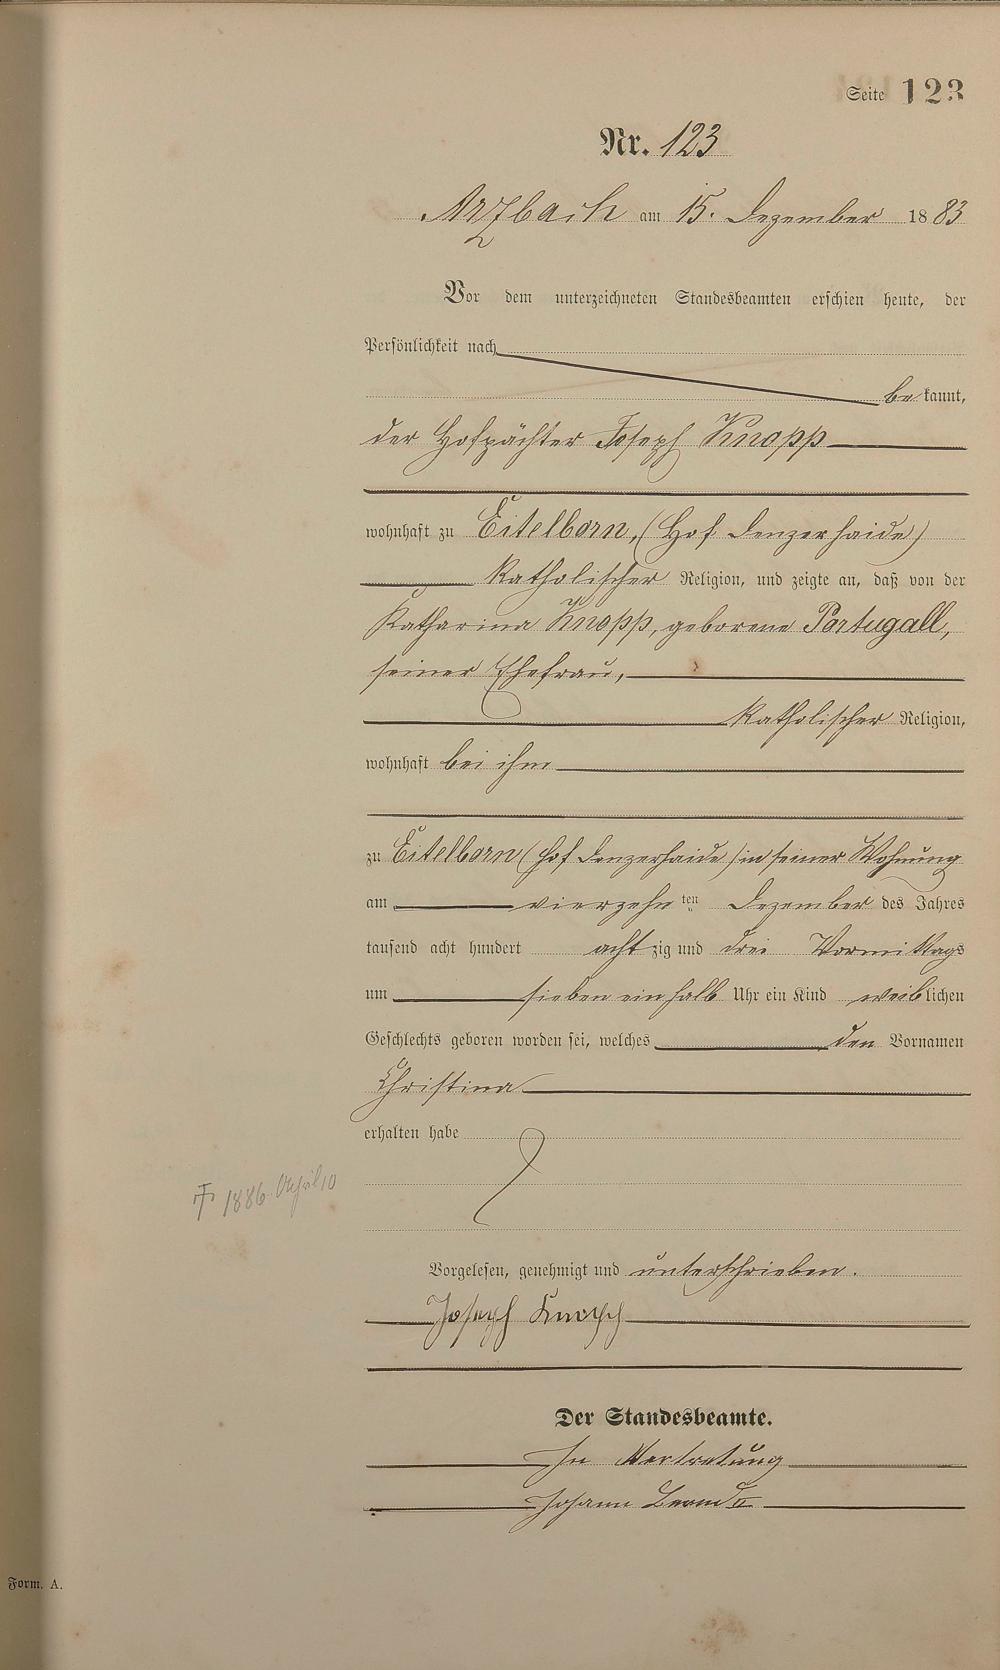 Seite 123
Nr. 123
Arzbach am 15. Dezember 1883
Vor dem unterzeichneten Standesbeamten erschien heute, der
Persönlichkeit nach
be kannt,
der Hofpächter Joseph Knopp
wohnhaft zu Eitelborn, (Hof Denzerhaide)
katholischer Religion, und zeigte an, daß von der
Katharina Knopp, geborene Portugall,
seiner Ehefrau,
katholischer Religion,
wohnhaft bei ihm
zu Eitelborn (Hof Denzerhaide) in seiner Wohnung
am vierzehn ten Dezember des Jahres
tausend acht hundert acht zig und drei Vormittags
um sieben einhalb Uhr ein Kind weib lichen
Geschlechts geboren worden sei, welches den Vornamen
Christina
erhalten habe
† 1886. April 10
Vorgelesen, genehmigt und unterschrieben.
Joseph Knopp
Der Standesbeamte.
In Vertretung
Johann II
Form. A.